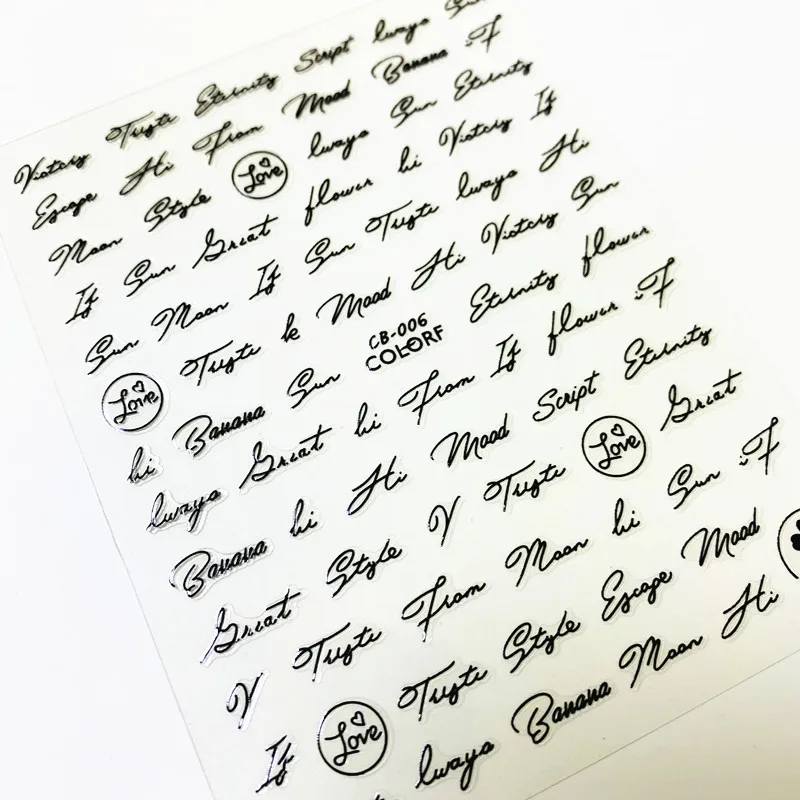 Victory Truste Eternity Script lwaya
Escape Hi From Mood Banana F
Moon Style Love lwaya Sun Eternity
If Sun Great flower hi Victory If
Sun Moon If Sun Truste lwaya Hi
Love Truste k Mood Hi Victory Sun
hi Banana Sun CB-006 COLORF Eternity flower
lwaya Great hi From If flower F
Banana hi Hi Mood Script Eternity
Great Style V Truste Love Great
V Truste From Moon hi Sun F
If Love Truste Style Escape Mood
lwaya Banana Moon Hi